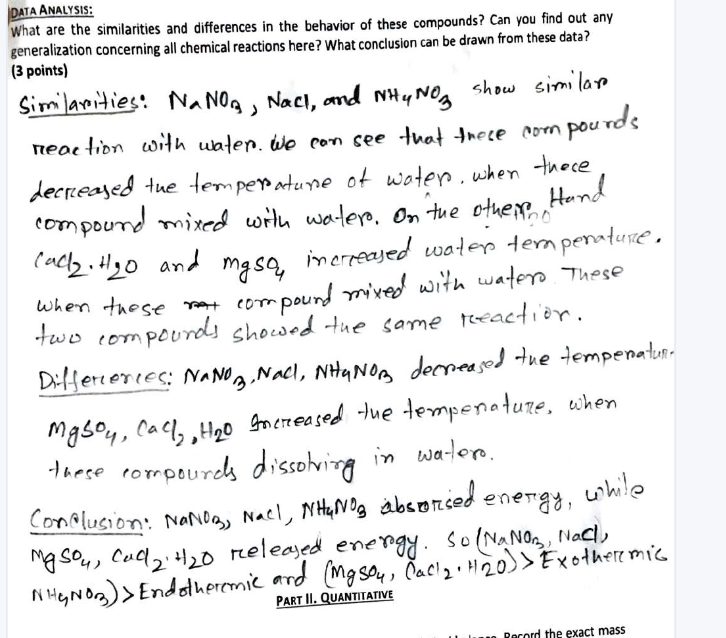 DATA ANALYSIS:
What are the similarities and differences in the behavior of these compounds? Can you find out any
generalization concerning all chemical reactions here? What conclusion can be drawn from these data?
(3 points)
Similarities: NaNO3, Nacl, and NH4NO3 show similar
reaction with water. We can see that these compounds
decreased the temperature of water, when these
compound mixed with water. On the other Hand
Cacl2.H2O and mgso4 increased water temperature.
When these compound mixed with water These
two compounds showed the same reaction.
Differences: NaNO3, Nacl, NH4NO3 decreased the temperatur-
MgSO4, Cacl2, H2O Increased the temperature, when
these compounds dissolving in water.
Conclusion: NaNO3, Nacl, NH4NO3 absorised energy, while
MgSO4, Cacl2.H2O released energy. So(NaNO3, Nacl,
NH4NO3)>Endothermic and (MgSO4, Cacl2.H2O)>Exothermic
PART II. QUANTITATIVE
Record the exact mass